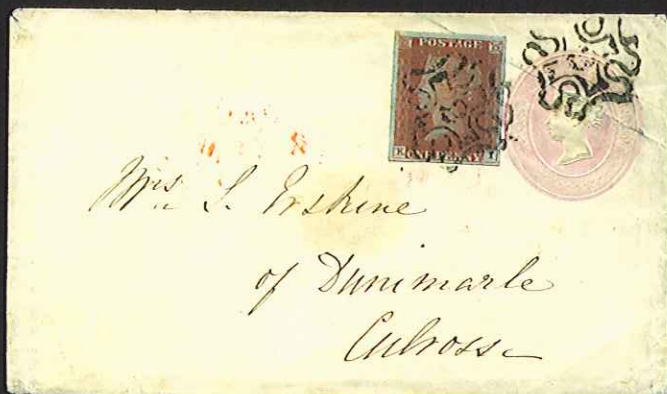 POSTAGE
ONE PENNY
Mrs. S. Erskine
of Dunimarle
Culross